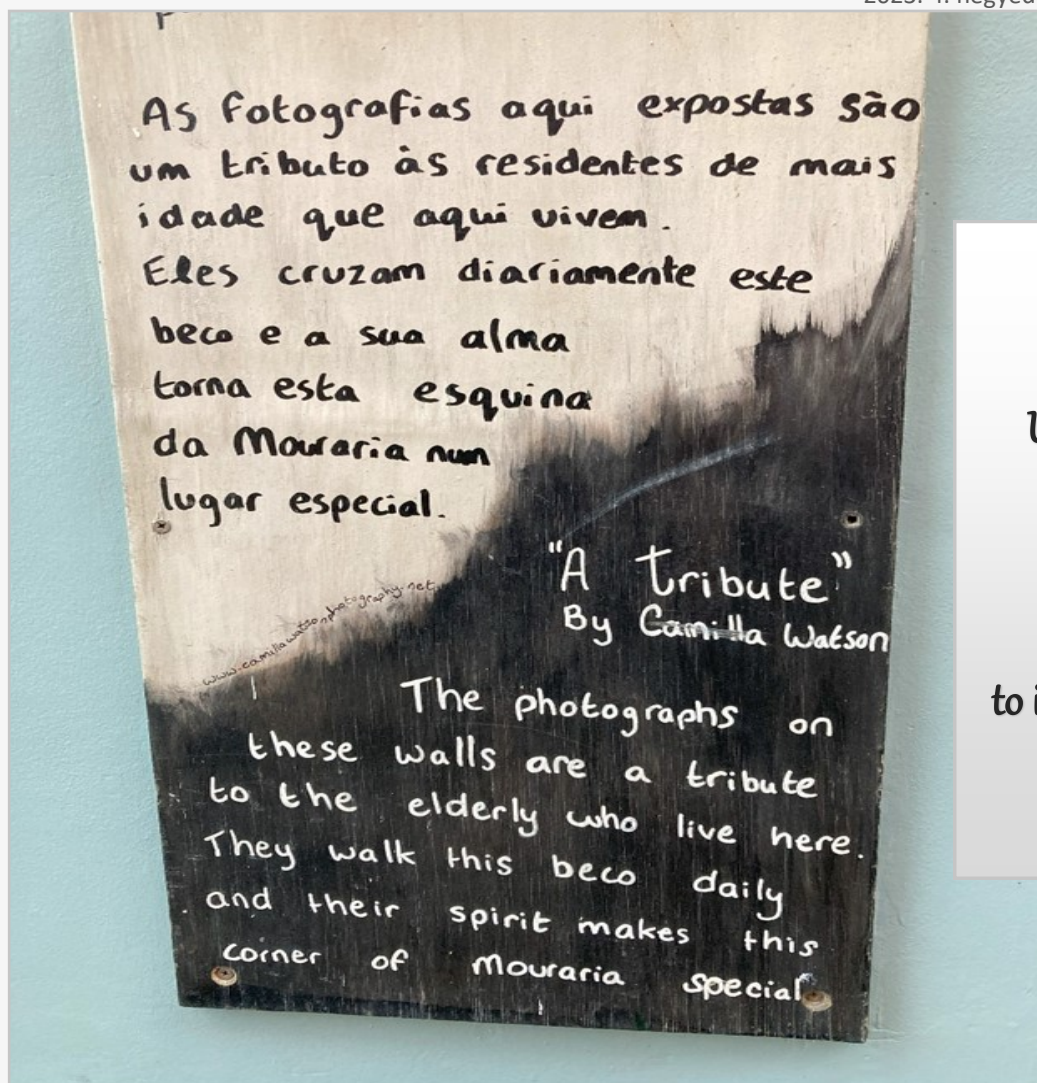 As fotografias aqui expostas são
um tributo às residentes de mais
idade que aqui vivem.
Eles cruzam diariamente este
beco e a sua alma
torna esta esquina
da Mouraria num
lugar especial.
"A tribute"
By Camilla Watson
www.camillawatsonphotography.net
The photographs on
these walls are a tribute
to the elderly who live here.
They walk this beco daily
and their spirit makes this
corner of mouraria special
to